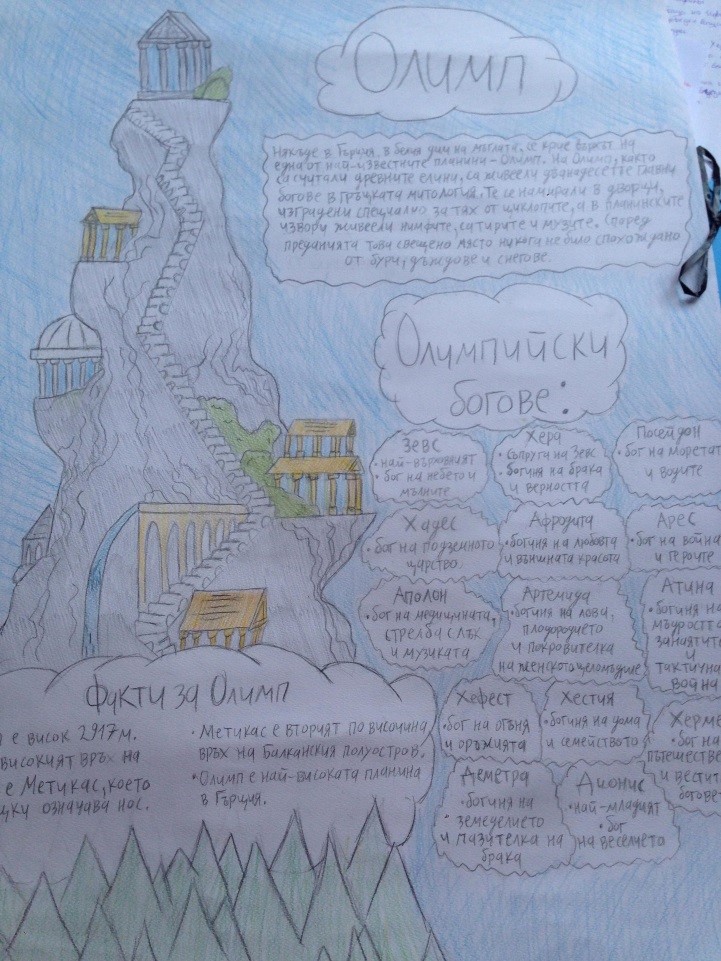 Олимп
Някъде в Гърция, в белия дим на мъглата, се крие върхът на
една от най-известните планини - Олимп. На Олимп, както
са считали древните елини, са живеели дванадесетте главни
богове в гръцката митология. Те се намирали в дворци,
изградени специално за тях от циклопите, а в планинските
извори живеели нимфите, сатирите и музите. Според
преданията това свещено място никога не било спохождано
от бури, дъждове и снегове.
Олимпийски
богове:
Зевс
• най-върховният
• бог на небето и
мълниите
Хера
• съпруга на Зевс
• богиня на брака
и верността
Посейдон
• бог на моретата
и водите
Хадес
• бог на подземното
царство
Афродита
• богиня на любовта
и външната красота
Арес
• бог на война
и героите
Аполон
• бог на медицината,
стрелба с лък
и музиката
Артемида
• богиня на лова,
плодородието
и покровителка
на женското целомъдрие
Атина
• богиня на
мъдростта
занаятите
и
тактична
война
Хефест
• бог на огъня
и оръжията
Хестия
• богиня на дома
и семейството
Херме
• бог на
пътешестве
и вестите
богове
Деметра
• богиня на
земеделието
и пазителка на
брака
Дионис
• най-младият
• бог
на веселието
Факти за Олимп
е висок 2917 м.
високият връх на
е Метикас, което
означава нос.
• Метикас е вторият по височина
връх на Балканския полуостров.
• Олимп е най-високата планина
в Гърция.